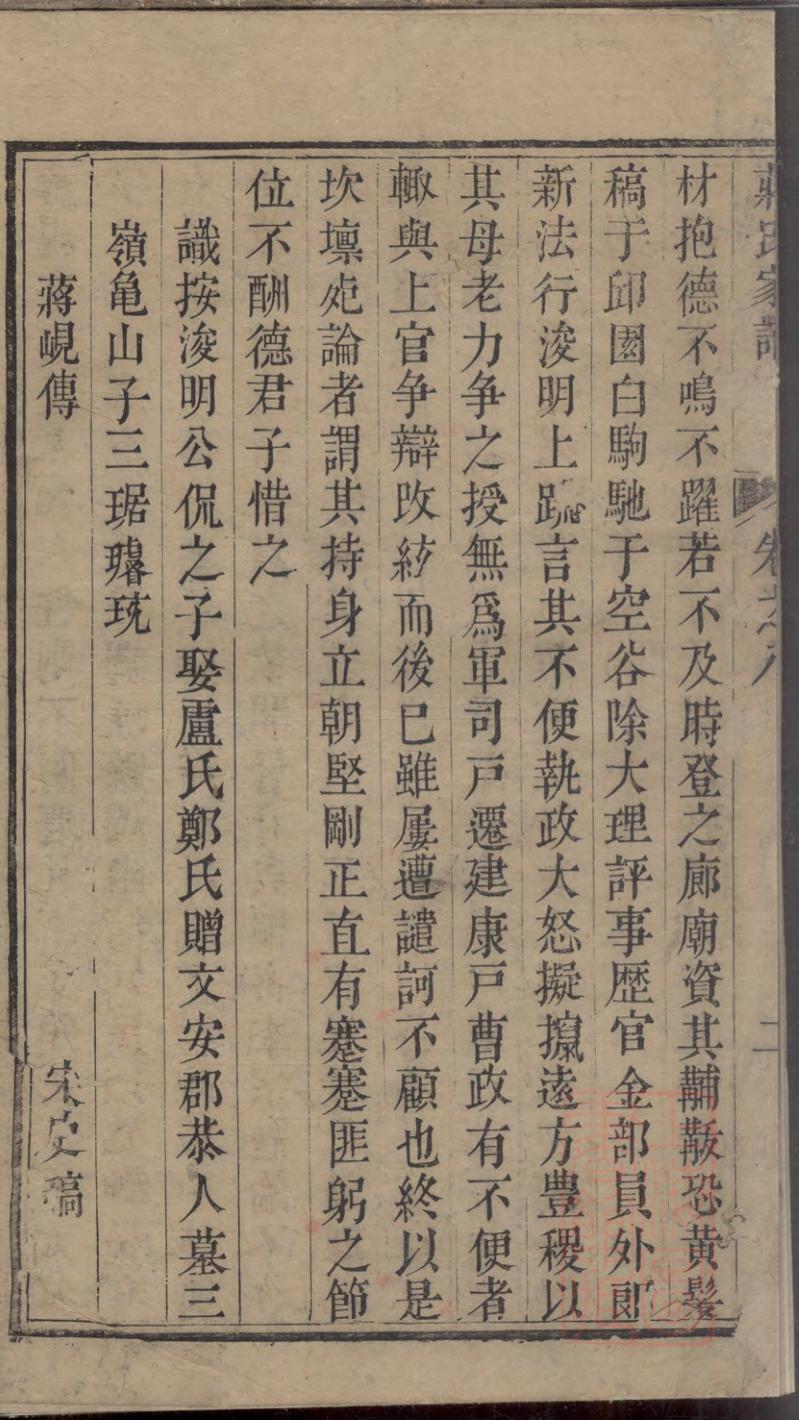 蔣氏家譜 卷之八 二
材抱德不鳴不躍若不及時登之廊廟資其黼黻恐黃髮
稿于邱園白駒馳于空谷除大理評事歴官金部員外郎
新法行浚明上䟽言其不便執政大怒擬攛遠方豊稷以
其母老力争之授無爲軍司戸遷建康戸曹政有不便者
輙與上官争辯改紗而後已雖屢遭譴訶不顧也終以是
坎壈䖏論者謂其持身立朝堅剛正直有蹇蹇匪躬之節
位不酬德君子惜之
識按浚明公侃之子娶盧氏鄭氏贈文安郡恭人墓三
嶺亀山子三琚璿珫
蔣峴傳 宋史稿